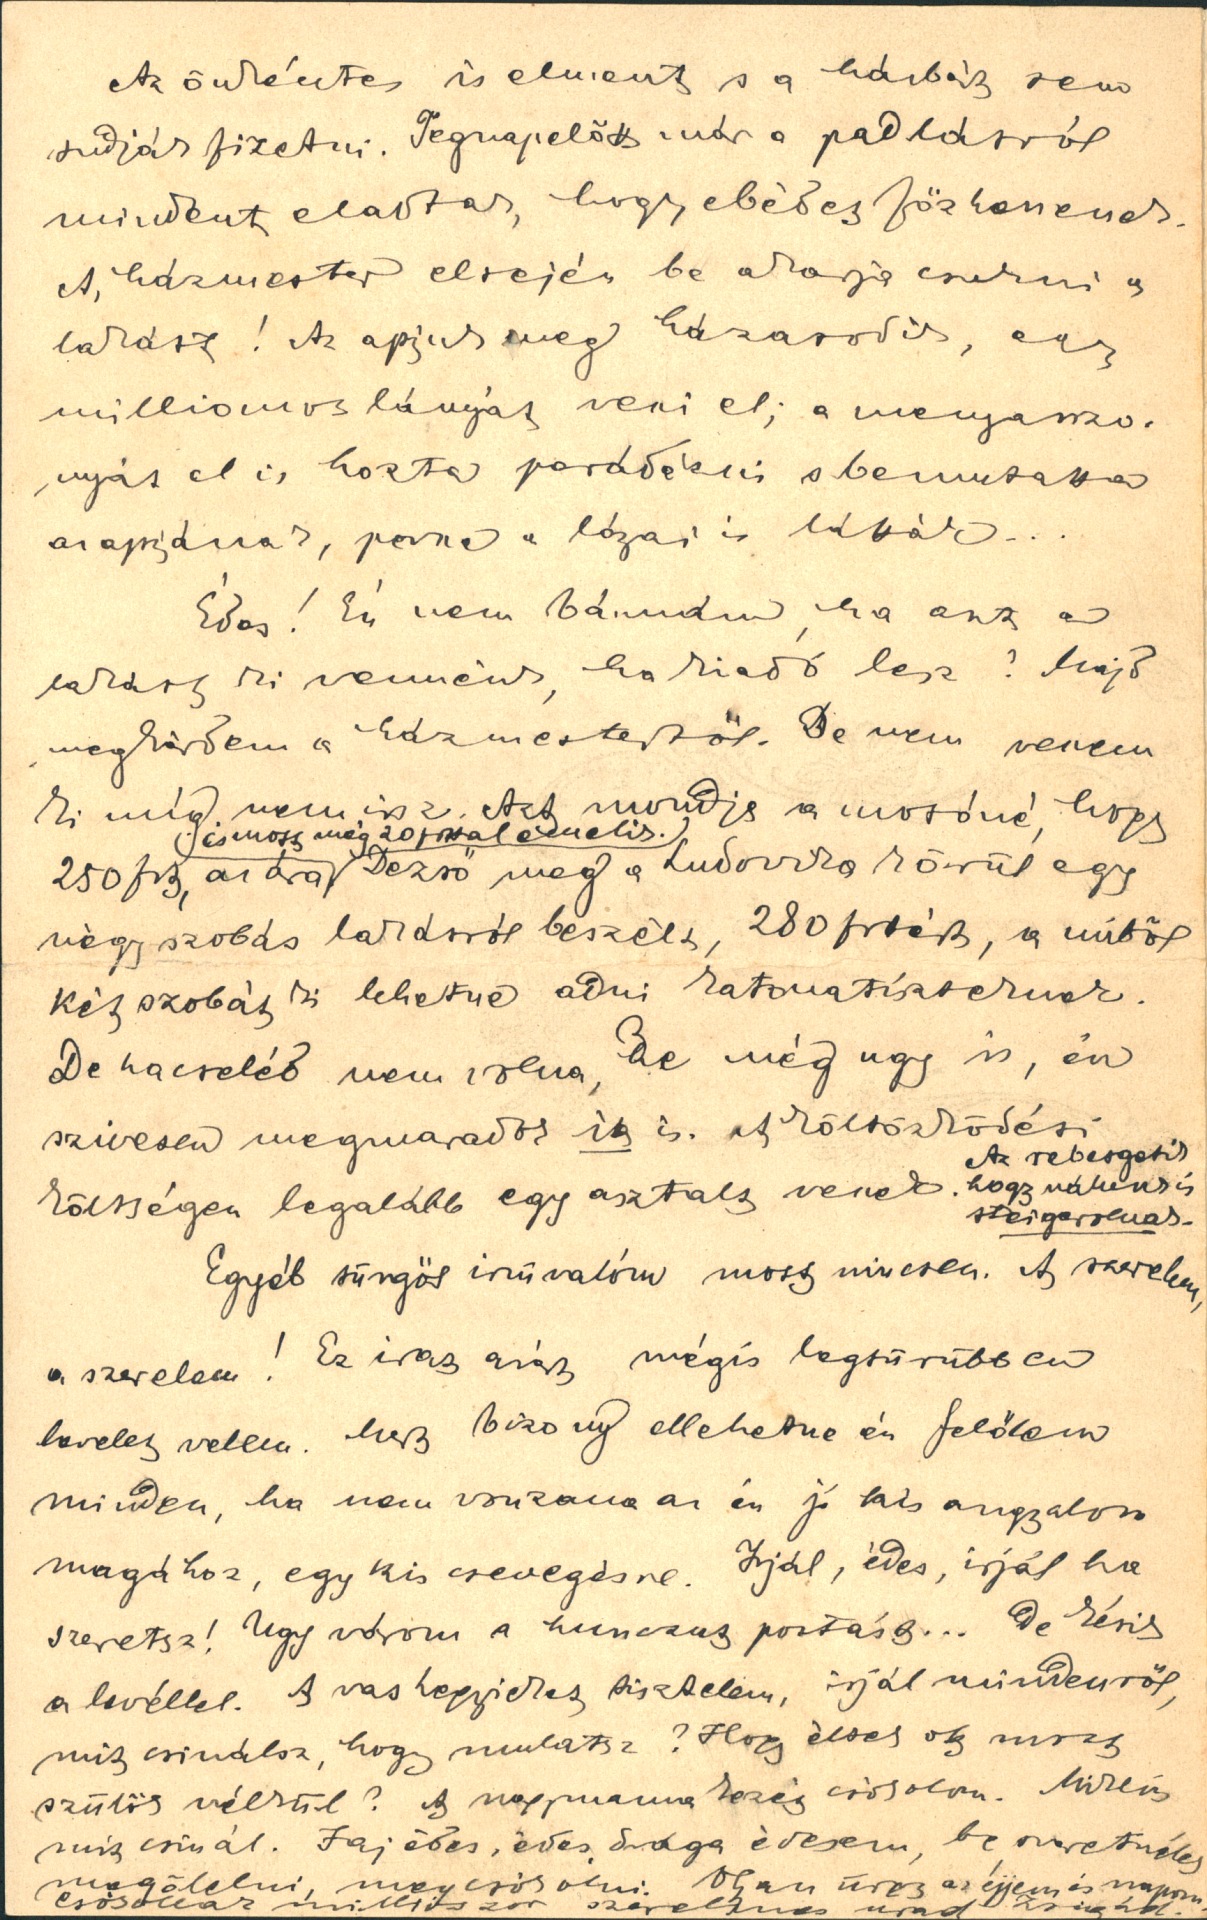 Az önkéntes is elment s a házbért sem
tudják fizetni. Tegnapelőtt már a padlásról
mindent eladtak, hogy ebédet főzhessenek.
A házmester elsején be akarja csukni a
lakást! Az apjuk meg házasodik, egy
milliomos lányát veszi el; a menyasszo-
nyát el is hozta parádézni s bemutatta
az apjának, persze a lózai is látták...
Édes! Én nem bánnám, ha azt a
lakást ki vennénk, ha kiadó lesz? Majd
megkérdem a házmestertől. De nem veszem
ki míg nem irsz. Azt mondja a mosóné, hogy
(és most még 20 frttal emelik.)
250 frt, az ára, Dezső meg a Ludovika körül egy
négy szobás lakásról beszélt, 280 frtért, a miből
két szobát ki lehetne adni katonatiszteknek.
De ha cseléd nem volna, De még ugy is, én
szivesen megmaradok itt is. A költözködési
költségen legalább egy asztalt veszek.
Azt rebesgetik
hogy nálunk is
steigerolnak.
Egyéb sürgős irnivalóm most nincsen. A szerelem,
a szerelem! Ez irat azért mégis legsürübben
levelet velem. Mert bizony ellehetne én felőlem
minden, ha nem vonzana az én jó kis angyalom
magához, egy kis csevegésre. Irjál, édes, irjál ha
szeretsz! Ugy várom a huncut postást... De késik
a levéllel. A vashegyieket tisztelem, irjál mindenről,
mit csinálsz, hogy mulatsz? Hogy éltek ott most
szülők nélkül? A nagymama kezét csókolom. Miklós
mit csinál. Jaj édes, édes, drága édesem, be szeretnélek
megölelni, megcsókolni. Olyan üres az éjjem is napom is
csókollak milliószor szerelmes urad Zsigád.